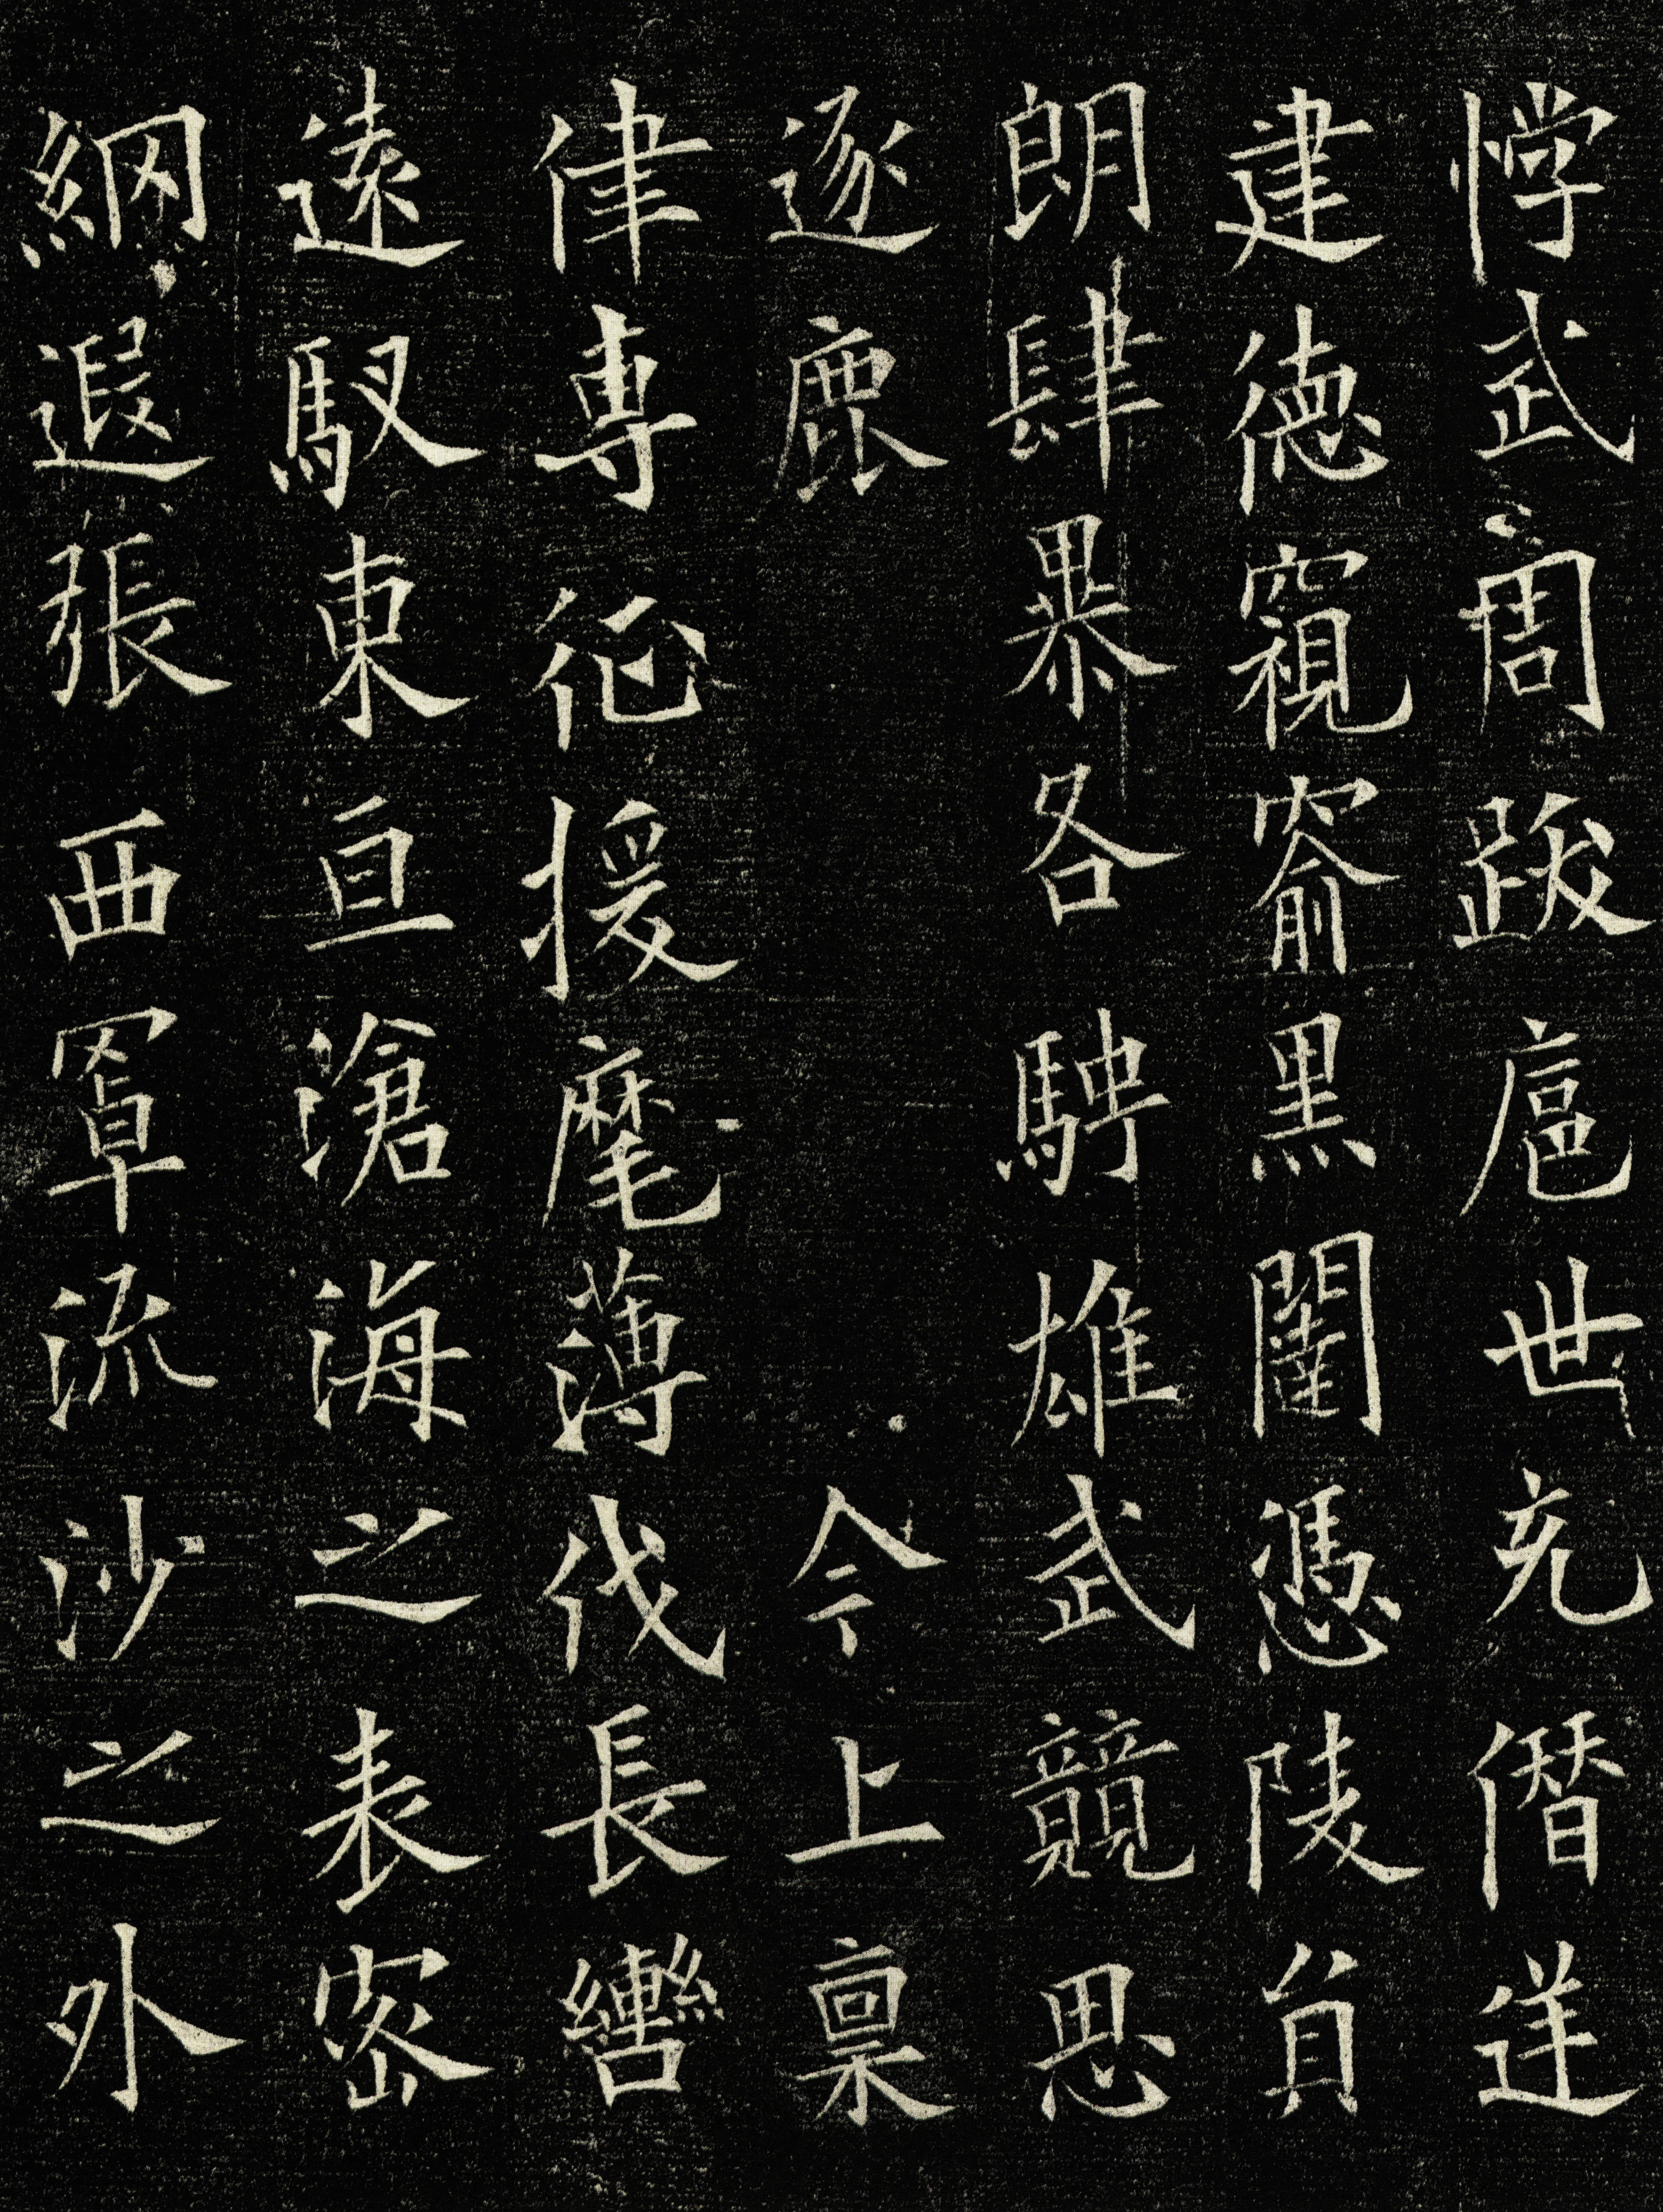 悖武周跋扈世充僭逆
建德窺窬黑闥憑陵員
朗肆暴各騁雄武競思
逐鹿　　　　今上稟
律專征援麾薄伐長轡
遠馭東亘滄海之表密
網遐張西罩流沙之外